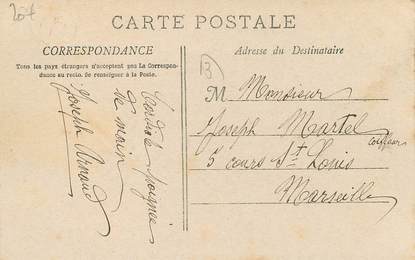 204
CARTE POSTALE
CORRESPONDANCE
Tous les pays étrangers n'acceptent pas La Correspon-
dance au recto. Se renseigner à la Poste.
Cordiale poignée
de main
Joseph Arnaud
Adresse du Destinataire
13
M Monsieur
Joseph Martel
coiffeur
5 cours St Louis
Marseille